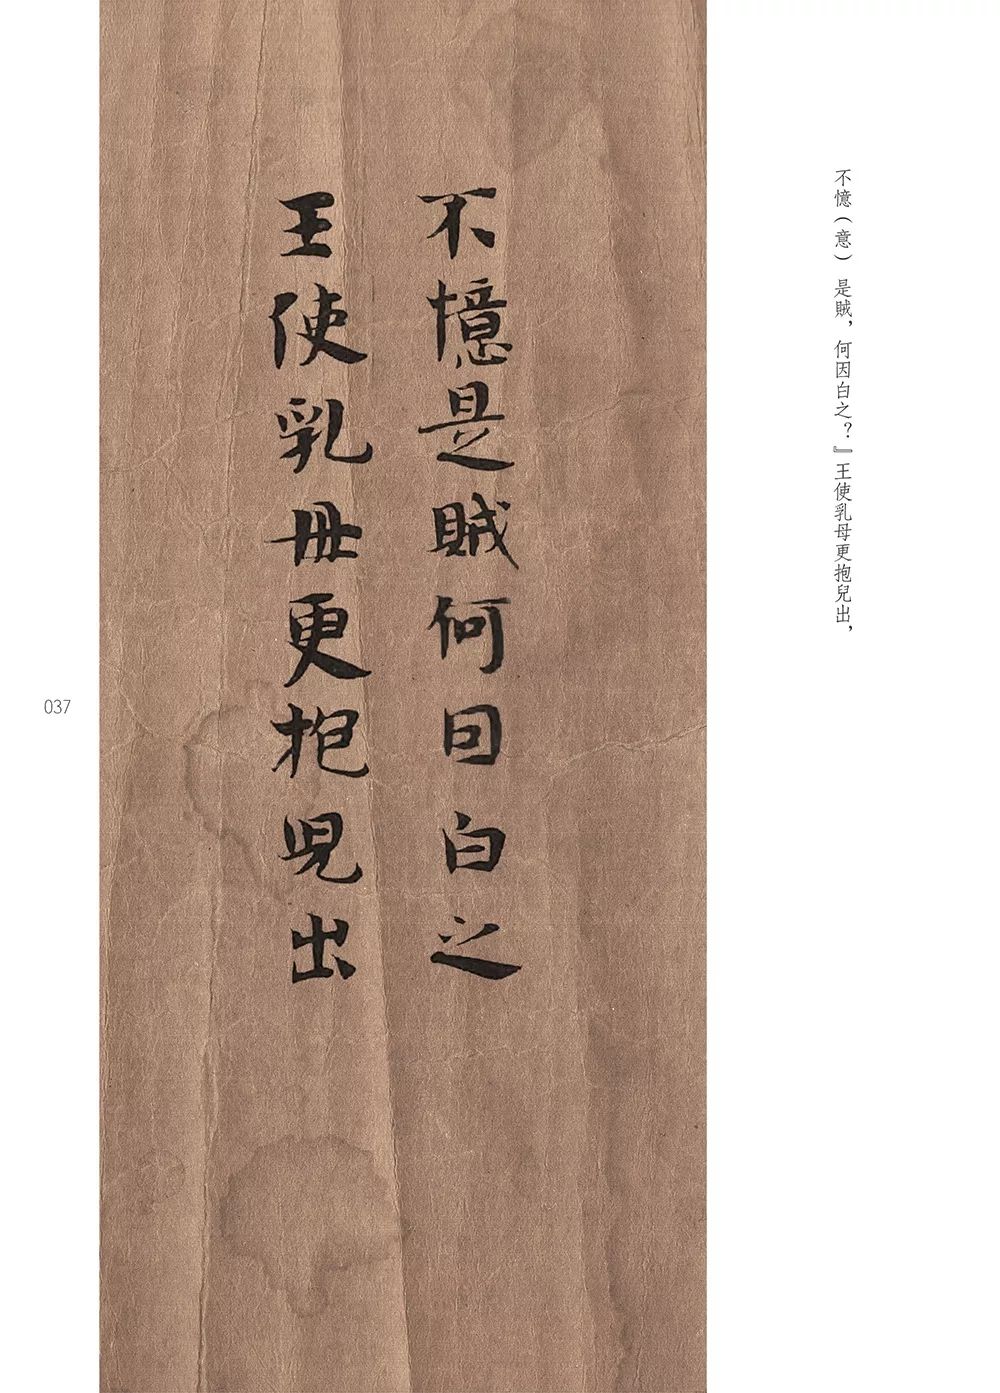 不憶（意）是賊，何因白之？』王使乳母更抱兒出，
不憶是賊何囙白之
王使乳母更抱兒出
037